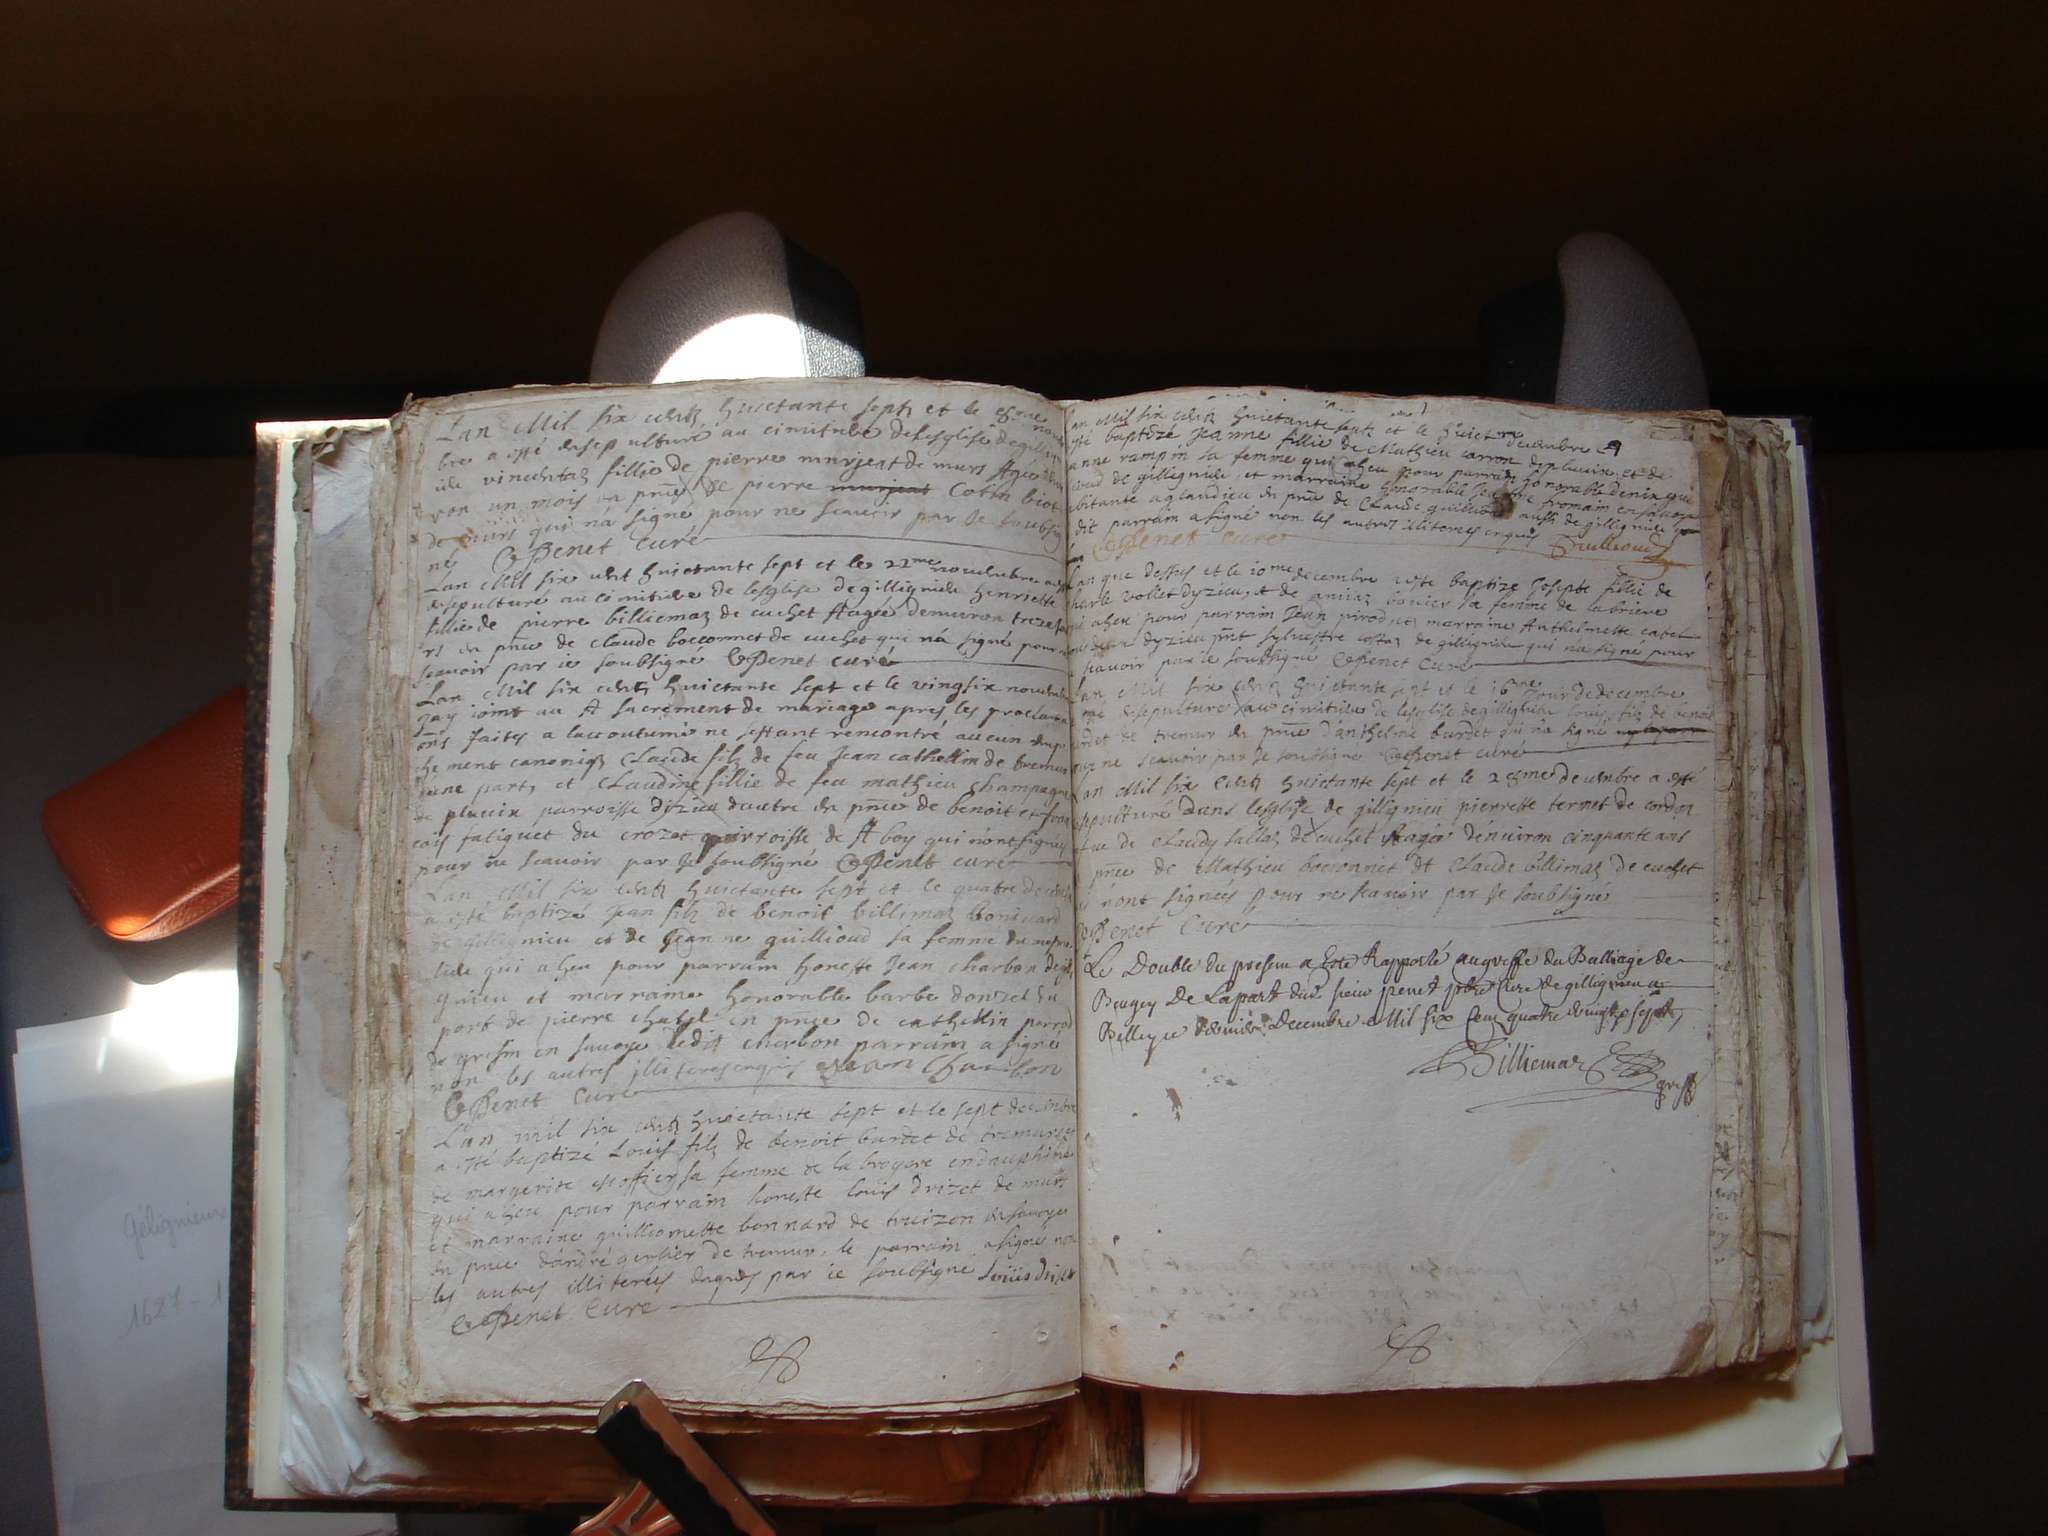 Lan Mil six cents huictante sept et le
bre a esté ensepulturé au cimitiere de lesglise de
vincentaz fillie de pierre murjeat de murs Agée
ron un mois en pnce de pierre murjeat Cotin biot
de murs qui na signé pour ne scavoir par Je soubsig
né Penet Curé
Lan Mil six cent huictante sept et le 22me novembre
ensepulturé au cimitiere de lesglise de gillignieu henriette
fillie de pierre billiemaz de cuchet Aagée denviron treze
rs en pnce de claude boconnet de cuchet qui na signé pour
scavoir par ie soubsigné Penet curé
Lan Mil six cents huictante sept et le vingsix novemb
jay ioint au st sacrement de mariage apres les proclama
ons faites a laccoutumé ne sestant rencontré aucun empe
chement canoniq Claude filz de feu Jean cathellin de tremur
dune part, et Claudine fillie de feu mathieu champagne
de pluvin parroisse dizieu dautre en pnce de benoit et fran
cois fatiguet du crozet parroisse de st boys qui nont signés
pour ne scavoir par Je soubsigné Penet curé
Lan Mil six cents huictante sept et le quatre decemb
a esté baptizé Jean filz de benoit billimaz bonivard
de gillignieu et de Jeanne guillioud sa femme du mesme
lieu qui a heu pour parrain honeste Jean charbon de gil
gnieu et marraine honorable barbe donzel du
port de pierre chatel en pnce de cathellin perrod
de gresin en savoye ledit charbon parrain a signé
non les autres illiteres enquis Jean Charbon
Penet Curé
Lan mil six cents huictante sept et le sept decembre
a esté baptizé Louis filz de benoit burdet de tremurs et
de margerite estoffier sa femme de la broyere en dauphiné
qui a heu pour parrain honeste louis drizet de murs
et marraine guilliomette bonnard de truizon en savoye
en pnce dandré gerlier de tremur, le parrain a signé non
les autres illiterés enquis par ie soubsigné Louis drizet
Penet Curé
Lan Mil six cents huictante sept et le huict decembre a
esté baptizé Jeanne fillie de Mathieu carron de pluvin et de
anne rampin sa femme qui a heu pour parrain honorable denis gui
lioud de gillignieu, et marraine honorable Jeanne fromain en savoye
abitante a glandieu en pnce de Claude guillioud aussi de gillignieu
dit parrain a signé non les autres illiteres enquis Guillioud
Penet Curé
Lan que dessus et le 10me decembre baptize Josepte fillie de
charle vollet dyzieu, et de bovier sa femme de la briere
qui a heu pour parrain Jean pirod et marraine Anthelmette catel
dyzieu pnt sylvestre costaz de gillignieu qui na signé pour
scavoir par ie soubsigné Penet Curé
Lan Mil six cents huictante sept et le 16me Jour de decembre
esté ensepulturé au cimitiere de lesglise de gillignieu louis filz de benoit
burdet de tremur en pnce danthelme burdet qui na signé
pour ne scavoir par Je soubsigné Penet curé
Lan Mil six cents huictante sept et le 20me decembre a esté
sepulturé dans lesglise de gillignieu pierrette ternet de cordon
veuve de Claudy sallaz de cuchet Aagée denviron cinquante ans
pnce de Mathieu boconnet et Claude billimaz de cuchet
qui nont signées pour ne scavoir par Je soubsigné
Penet Curé
Le Double du present a Esté Rapporté au greffe du Balliage de
Beugey De La part dud sieur penet pbre Curé de gillignieu a
Belley ce dernier Decembre Mil six Cent quatre vingt sept
Billiemaz greff
Gélignieux
1627 - 1